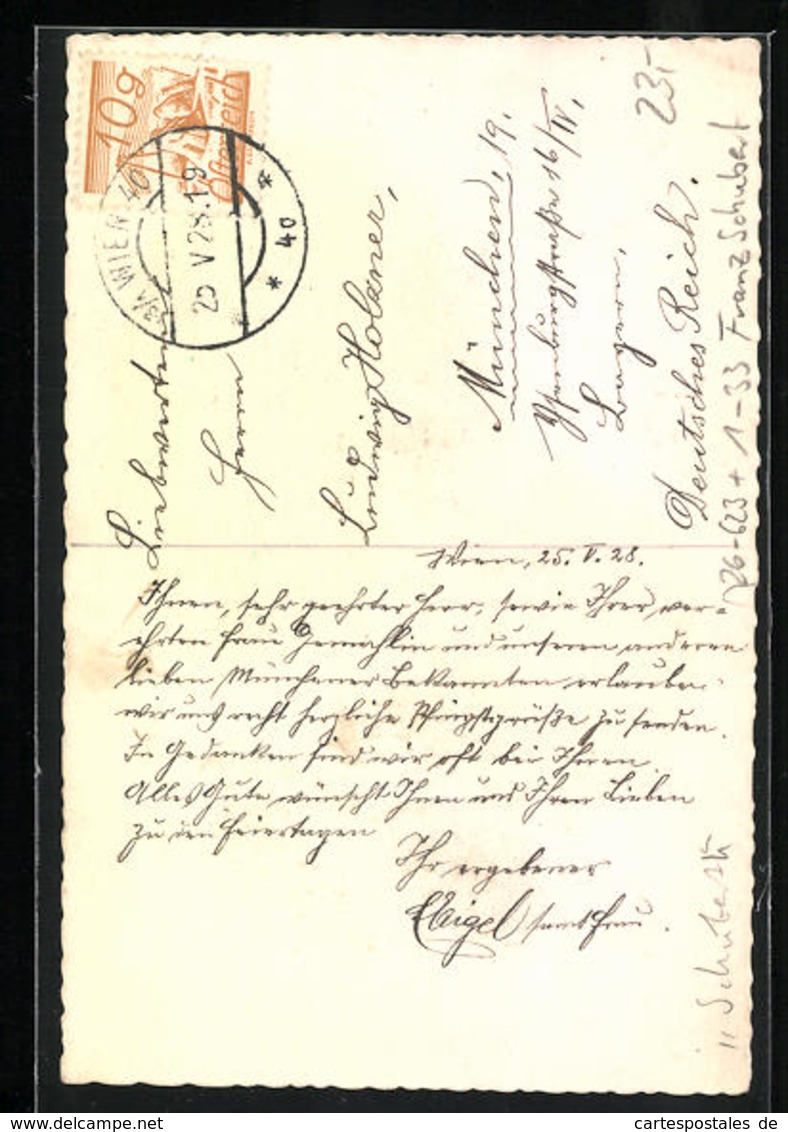 10g
Österreich
3/1 WIEN 40
25 V 28.19
* 40 *
Liebwerten
Herrn
Ludwig Holzner,
München, 19.
Ysenburgstraße 16/IV,
Bayern,
Deutsches Reich.
23,-
76-623 + 1-33 Franz Schubert
Wien, 25. V. 28.
Ihnen, sehr geehrter Herr, sowie Ihrer ver-
ehrten Frau Gemahlin und unseren anderen
lieben Münchener Bekannten erlauben
wir uns recht herzliche Pfingstgrüße zu senden.
In Gedanken sind wir oft bei Ihnen.
Alles Gute wünscht Ihnen und Ihren Lieben
zu den Feiertagen
Ihr ergebener
samt Frau.
cartespostales.de